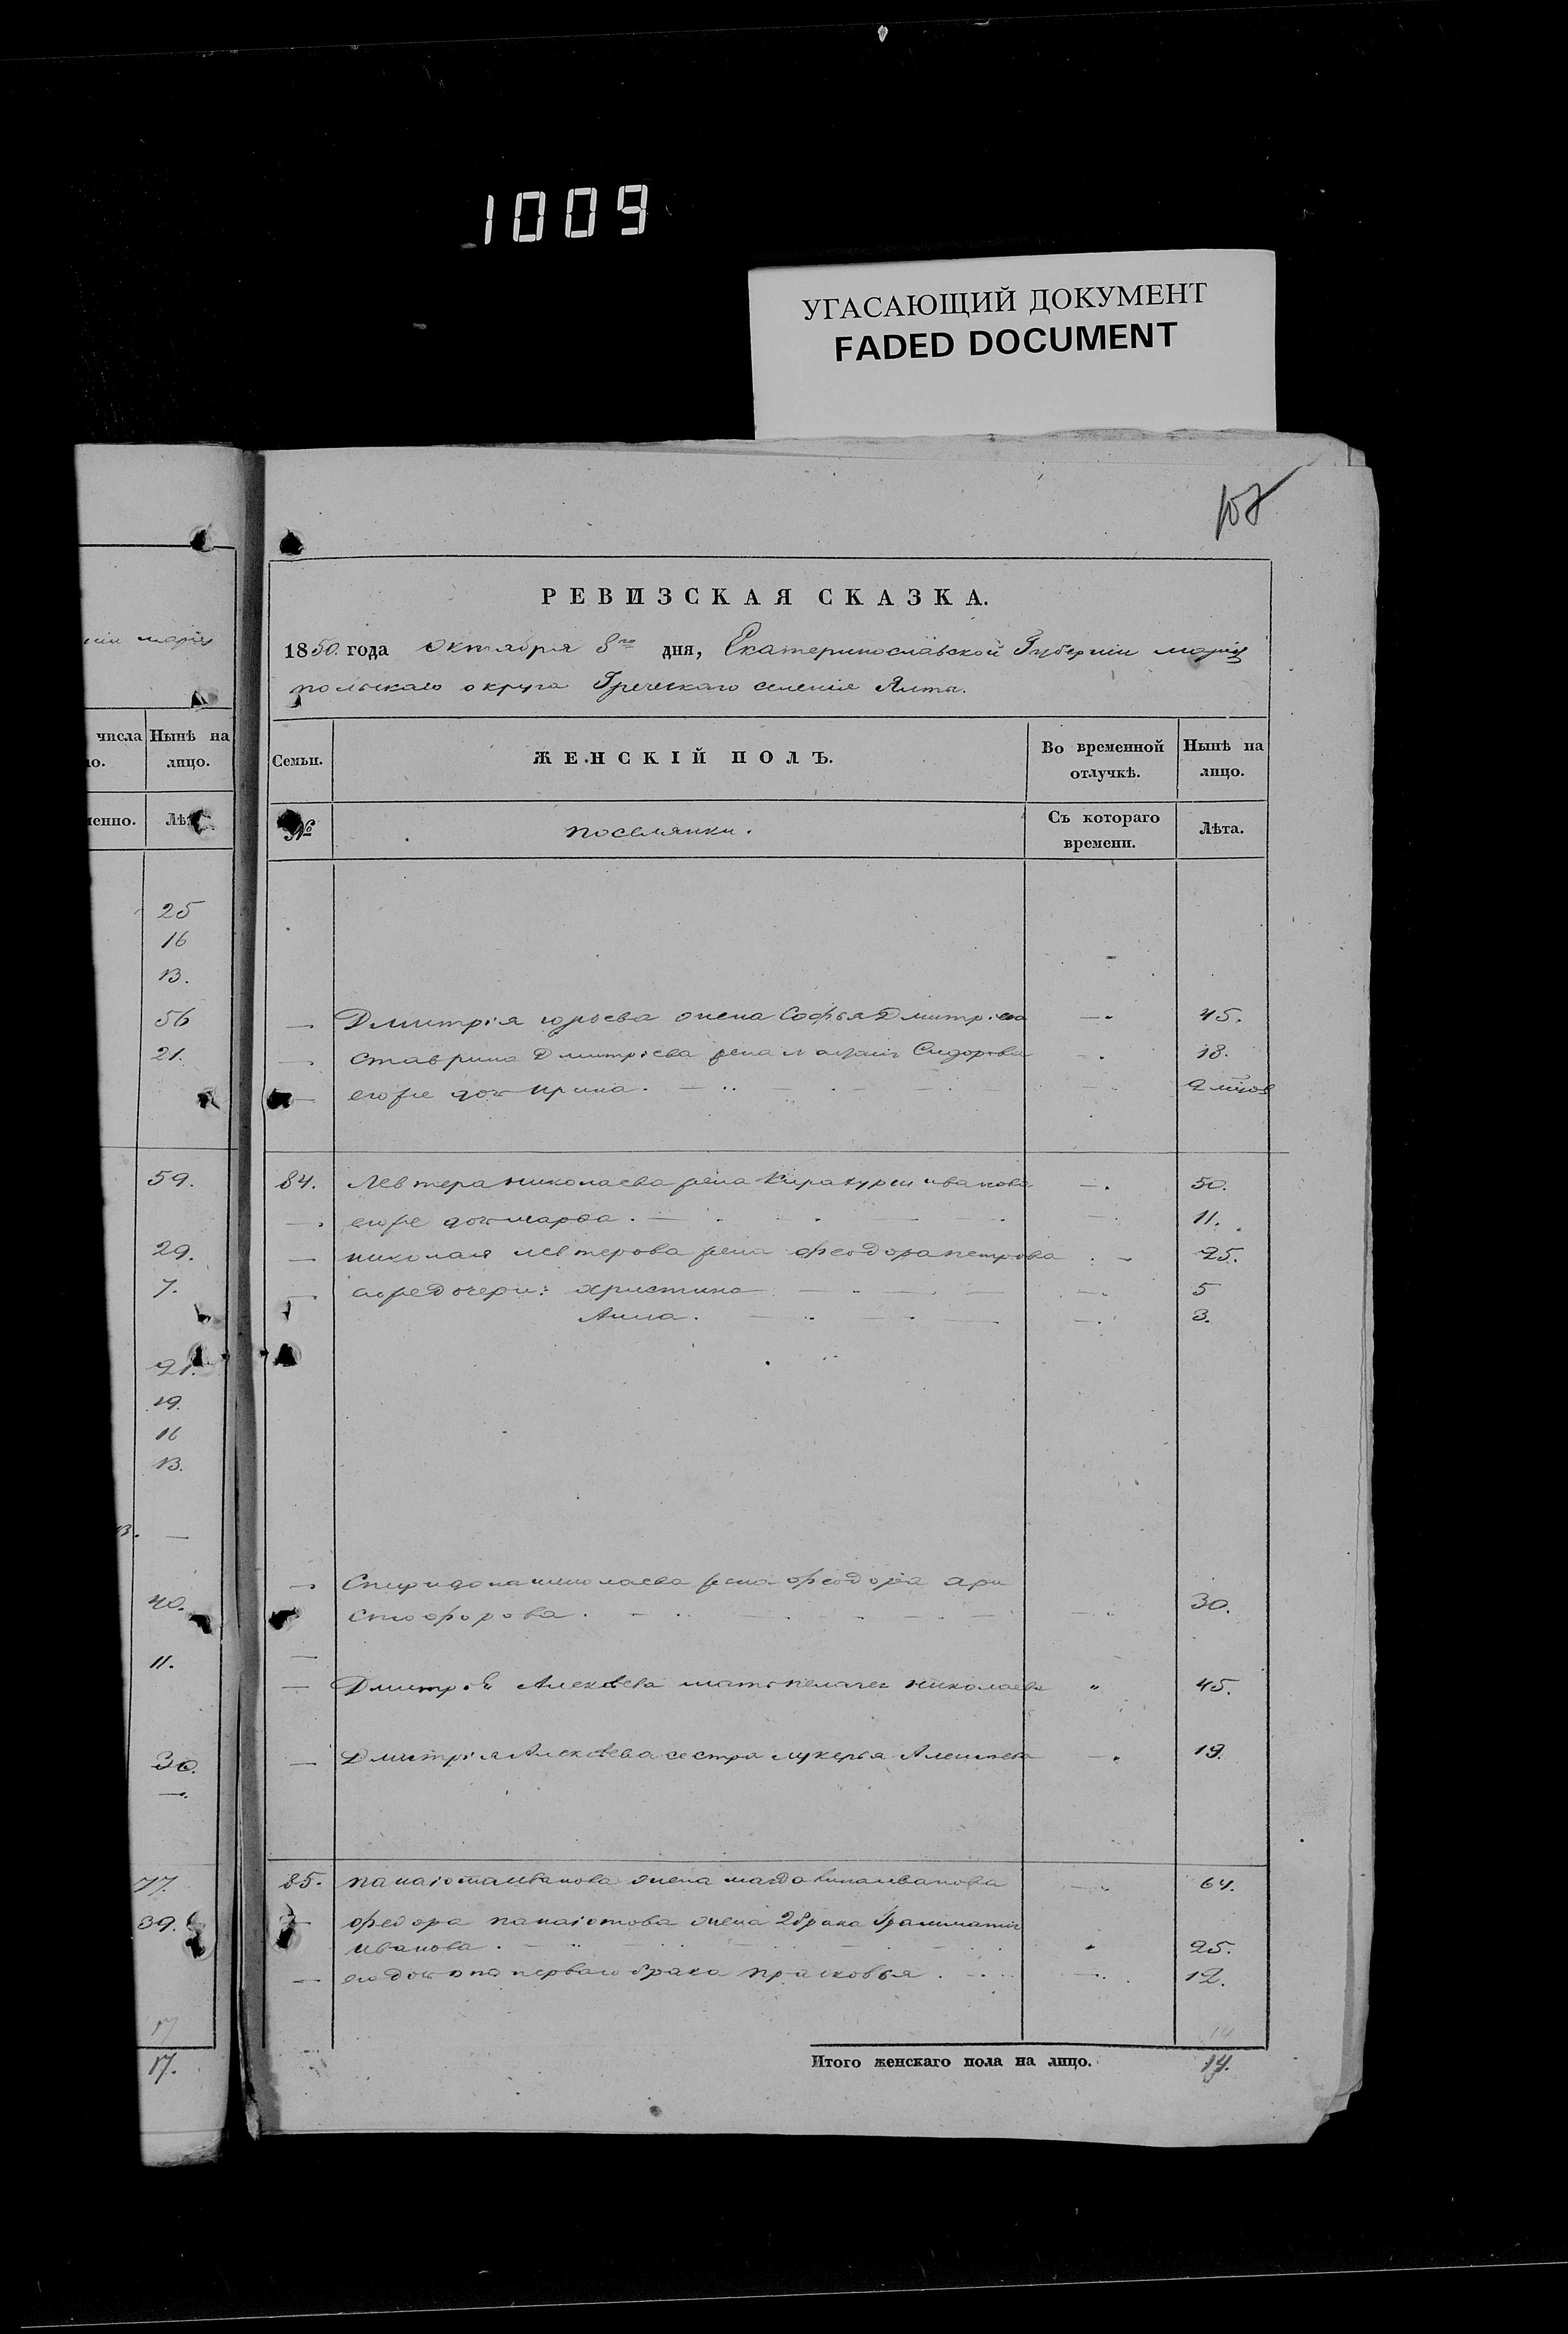 1009
УГАСАЮЩИЙ ДОКУМЕНТ
FADED DOCUMENT
РЕВИЗСКАЯ СКАЗКА.
1850. года октября 8го дня, Екатеринославской Губернии мариу
польскаго округа Греческаго селения Ялты.
числа Нынѣ на
лицо.
Лѣ
25
16
13.
56
21.
59.
29.
7.
21.
19.
16
13.
40.
11.
30.
77.
39.
17
17.
Семьи. ЖЕНСКІЙ ПОЛЪ. Во временной отлучкѣ. Нынѣ на лицо.
№ поселянки. Съ котораго времени. Лѣта.
— Дмитрія юрьева жена Софья Дмитріева —„ 45.
— Ставрина Дмитріева жена Сидорова 18.
— его же доч ирина. 2 мцов
84. Левтера николаева жена Киракуци иванова —. 50.
—. его же доч марфа. 11.
— николая левтерова жена феодора петрова 25.
— его же дочери: христина 5
Анна. 3.
— Спиридона николаева жена феодора хри
стофорова. 30.
—
— Дмитрія Алексѣева мать пелагея николаева „ 45.
— Дмитрія Алексѣева сестра лукерья Алексѣева —„ 19.
85. панаіота иванова жена магдалина иванова 64.
федора панаіотова жена 2 брака Грамматик
иванова. 25.
— его доч от перваго брака прасковья. 12.
14
Итого женскаго пола на лицо. 14.